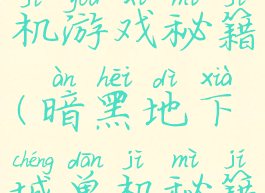 机游戏秘籍
àn hēi dì xià
(暗黑地下
chéng dān jī mì jí
城单机秘籍